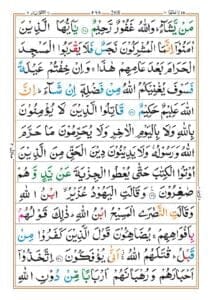 مَنْ يَّشَآءُ ؕ وَاللّٰهُ غَفُوْرٌ رَّحِيْمٌ ۝ يٰۤاَيُّهَا الَّذِيْنَ
اٰمَنُوْۤا اِنَّمَا الْمُشْرِكُوْنَ نَجَسٌ فَلَا يَقْرَبُوا الْمَسْجِدَ
الْحَرَامَ بَعْدَ عَامِهِمْ هٰذَا ۚ وَاِنْ خِفْتُمْ عَيْلَةً
فَسَوْفَ يُغْنِيْكُمُ اللّٰهُ مِنْ فَضْلِهٖۤ اِنْ شَآءَ ؕ اِنَّ
اللّٰهَ عَلِيْمٌ حَكِيْمٌ ۝ قَاتِلُوا الَّذِيْنَ لَا يُؤْمِنُوْنَ
بِاللّٰهِ وَلَا بِالْيَوْمِ الْاٰخِرِ وَلَا يُحَرِّمُوْنَ مَا حَرَّمَ
اللّٰهُ وَرَسُوْلُهٗ وَلَا يَدِيْنُوْنَ دِيْنَ الْحَقِّ مِنَ الَّذِيْنَ
اُوْتُوا الْكِتٰبَ حَتّٰى يُعْطُوا الْجِزْيَةَ عَنْ يَّدٍ وَّهُمْ
صٰغِرُوْنَ ۝ وَقَالَتِ الْيَهُوْدُ عُزَيْرُ ۨابْنُ اللّٰهِ
وَقَالَتِ النَّصٰرَى الْمَسِيْحُ ابْنُ اللّٰهِ ؕ ذٰلِكَ قَوْلُهُمْ
بِاَفْوَاهِهِمْ ۚ يُضَاهِـُٔوْنَ قَوْلَ الَّذِيْنَ كَفَرُوْا مِنْ
قَبْلُ ؕ قٰتَلَهُمُ اللّٰهُ ۚ اَنّٰى يُؤْفَكُوْنَ ۝ اِتَّخَذُوْۤا
اَحْبَارَهُمْ وَرُهْبَانَهُمْ اَرْبَابًا مِّنْ دُوْنِ اللّٰهِ